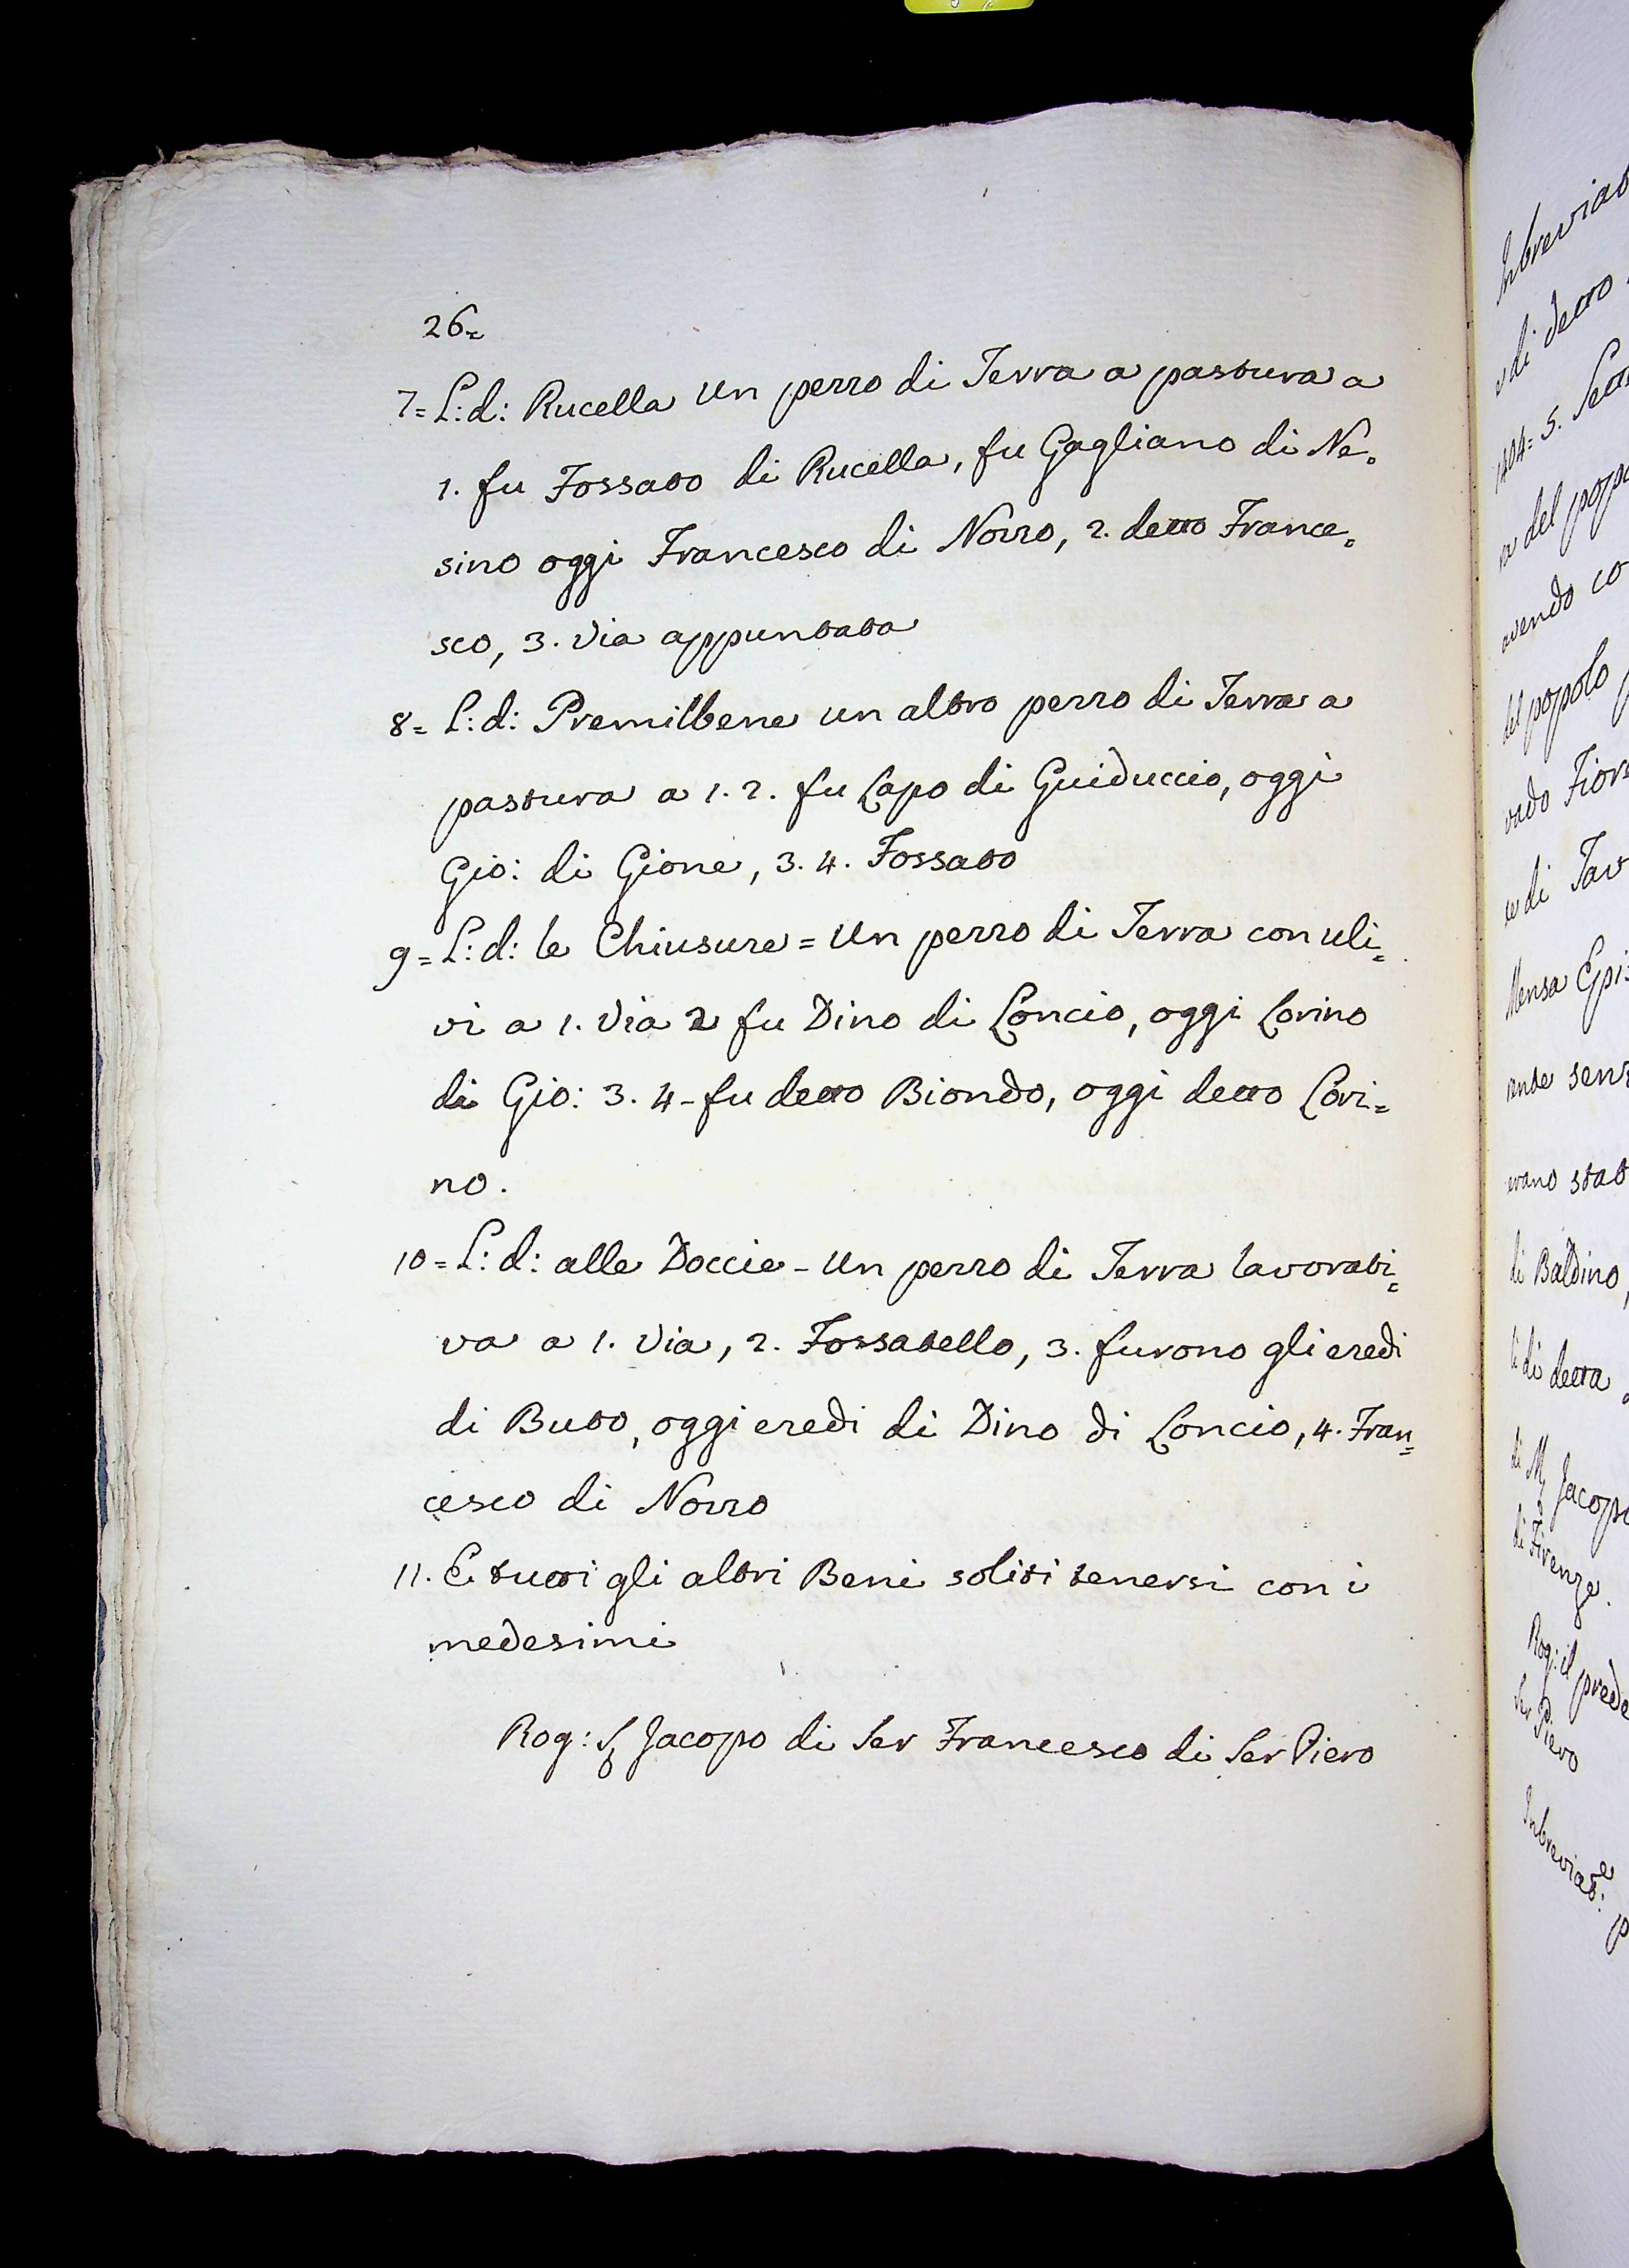 26=
7= L: d: Rucella un pezzo di Terra a pastura a
1. fu Fossato di Rucella, fu Gagliano di Ne=
sino oggi Francesco di Nozzo, 2. detto France=
sco, 3. Via appuntata
8= L: d: Premilbene un altro pezzo di Terra a
pastura a 1. 2. fu Lapo di Guiduccio, oggi
Gio: di Gione, 3. 4. Fossato
9= L: d: le Chiusure = Un pezzo di Terra con uli=
vi a 1. Via 2 fu Dino di Concio, oggi Corino
di Gio: 3. 4 - fu detto Biondo, oggi detto Cori=
no.
10= L: d: alle Doccie - Un pezzo di Terra lavorati=
va a 1. Via, 2. Fossatello, 3. furono gli eredi
di Buto, oggi eredi di Dino di Concio, 4. Fran=
cesco di Nozzo
11. E tutti gli altri Beni soliti tenersi con i
medesimi
Rog: S Jacopo di Ser Francesco di Ser Piero
Inbreviat
di detto
1404= 5.
del popo
avendo co
del popolo
vado Fior
di Tav
Mensa Epis
sent
erano stat
di Baldino,
di detta
di M Jacopo
di Firenze.
Rog: il prede
Ser Piero
Inbreviat:e